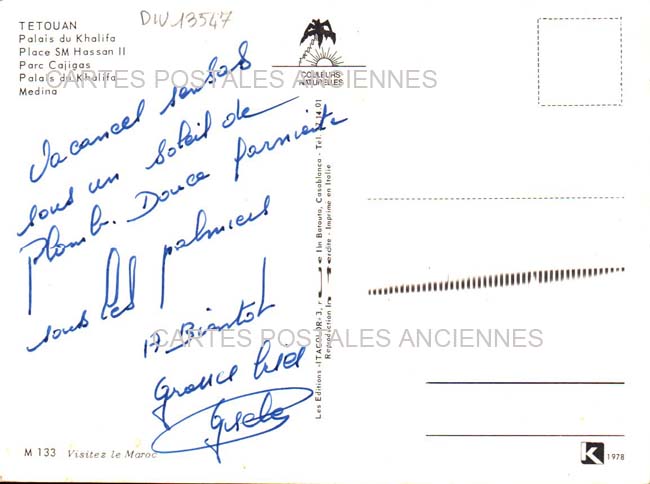 TETOUAN
Palais du Khalifa
Place SM Hassan II
Parc Cajigas
Palais du Khalifa
Medina
DW 13547
COULEURS
NATURELLES
CARTES POSTALES ANCIENNES
Vacances
sous un soleil de
Plomb. Douce farniente
sous les palmiers
A Bientot
Grosse bise
CARTES POSTALES ANCIENNES
Les Editions -ITACOLOR-3, Ibn Batouta, Casablanca - Tel. 14.01
Reproduction Interdite - Imprime en Italie
M 133 Visitez le Maroc
K 1978